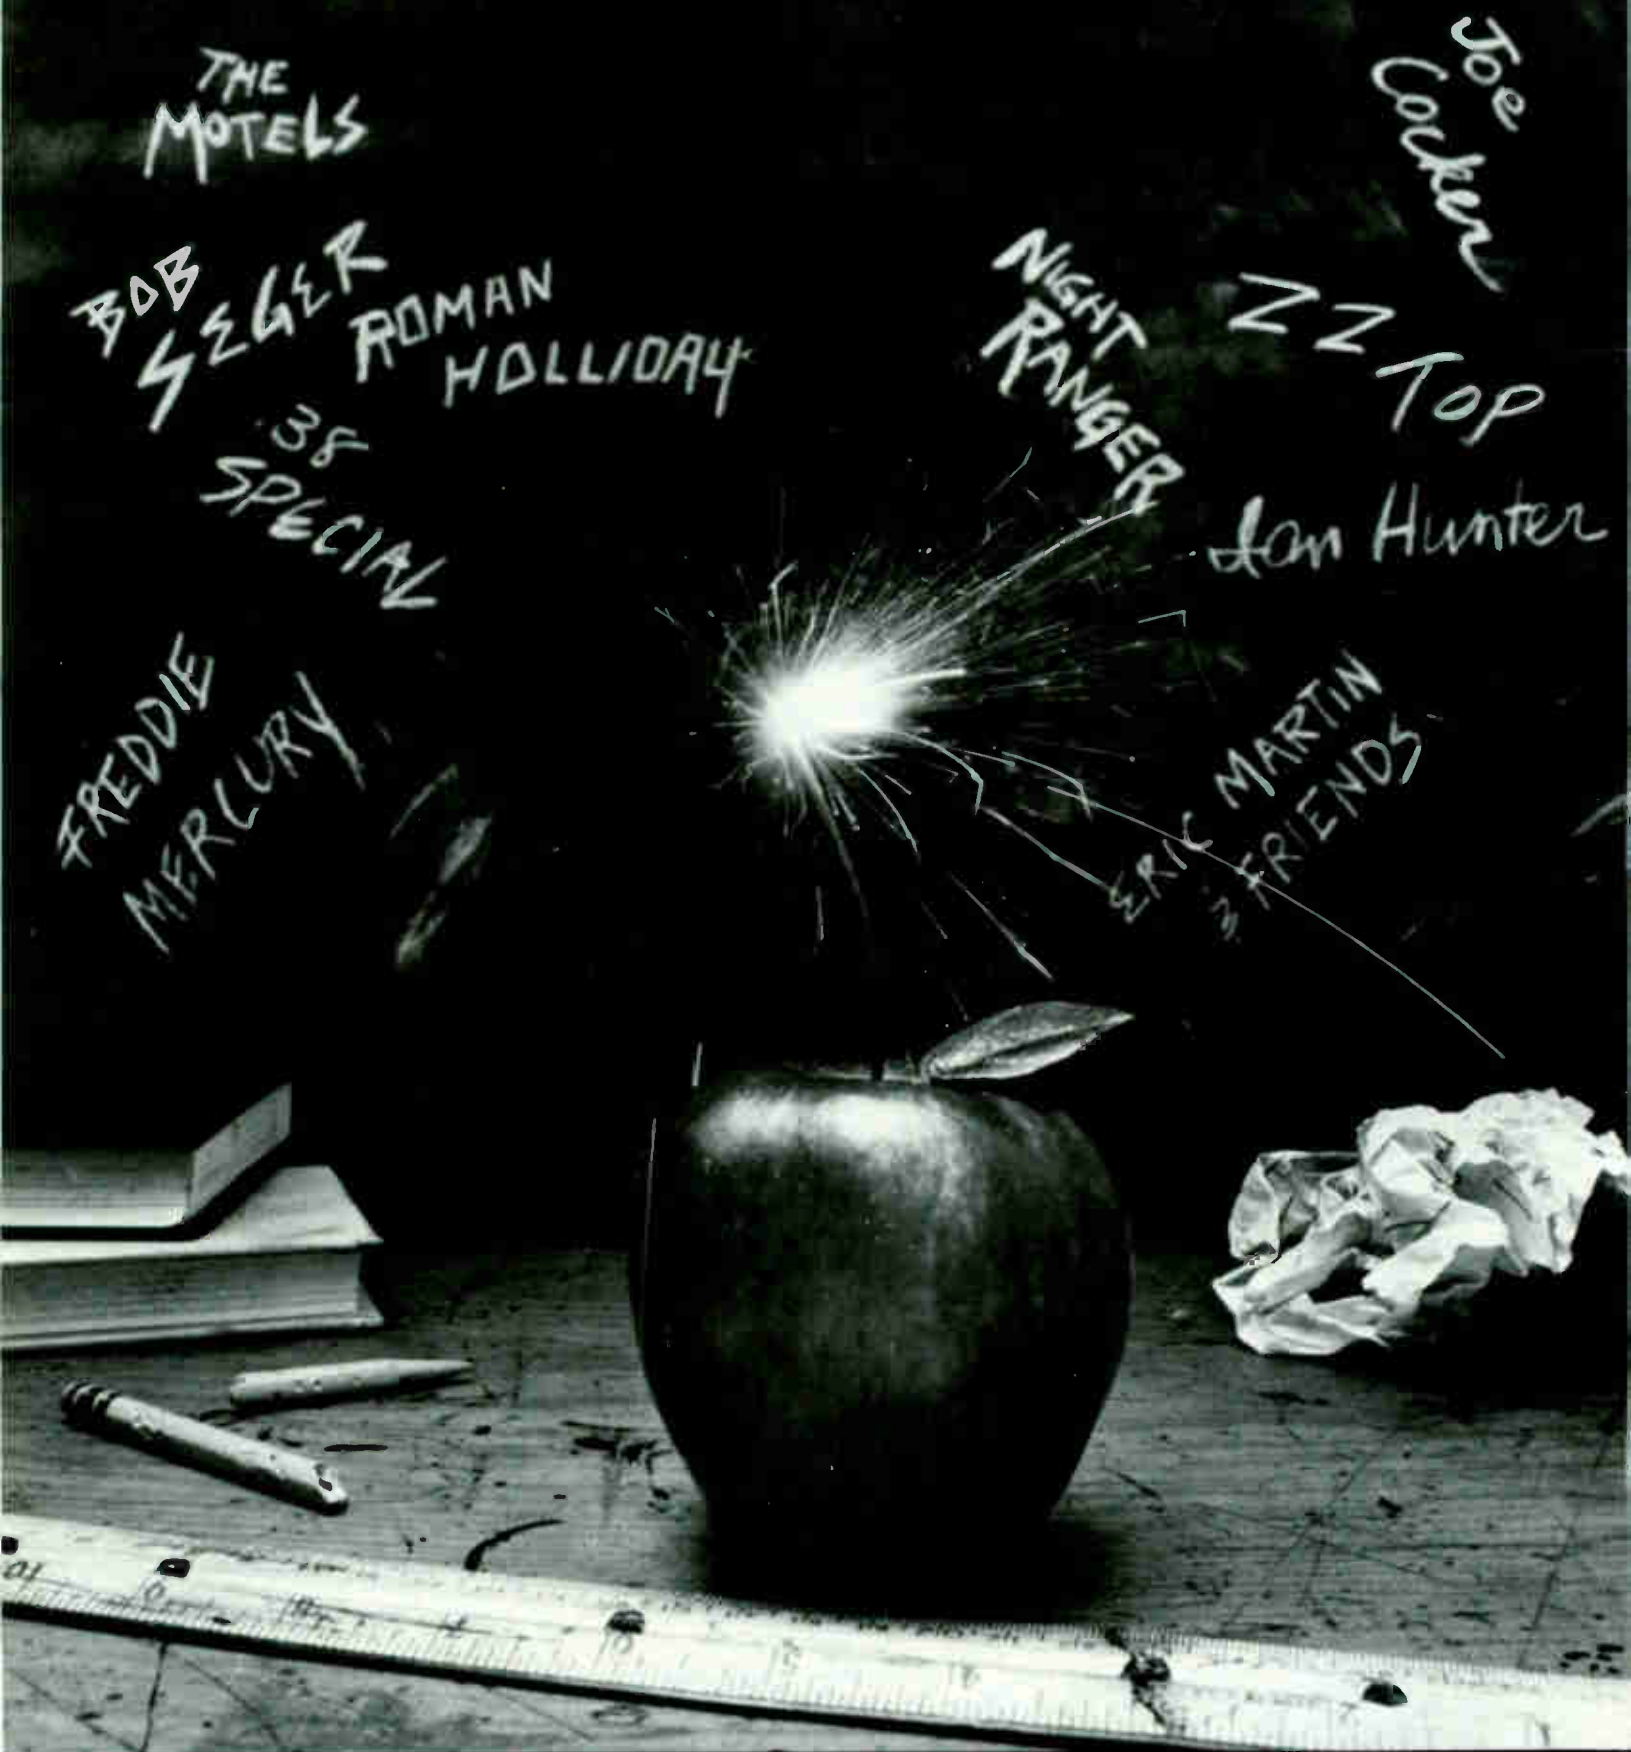 THE
MOTELS
Joe
Cocker
BOB
SEGER
ROMAN
HOLLIDAY
NIGHT
RANGER
ZZ
TOP
38
SPECIAL
Ian Hunter
FREDDIE
MERCURY
ERIC MARTIN
& FRIENDS